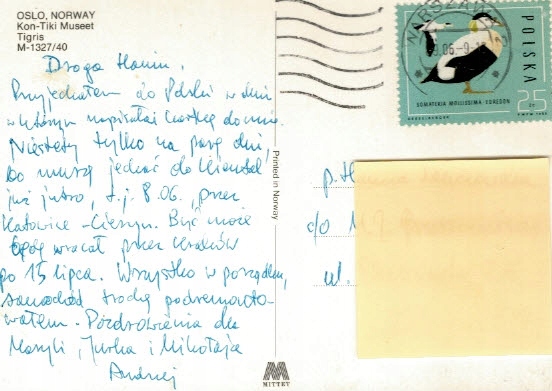 OSLO, NORWAY
Kon-Tiki Museet
Tigris
M-1327/40
Droga Haniu,
Przyjechałem do Polski w dniu
w którym napisałaś kartkę do mnie.
Niestety tylko na parę dni,
bo muszę jechać do
już jutro, t.j. 8.06. przez
Katowice - Cieszyn. Być może
będę wracał przez Kraków
po 15 lipca. Wszystko w porządku,
samochód trochę podremonto-
wałem. Pozdrowienia dla
Maryli, Jurka i Mikołaja
Andrzej
Printed in Norway
MITTET
WARSZAWA
POLSKA
SOMATERIA MOLLISSIMA - EDREDON
p. H
c/o M
ul.